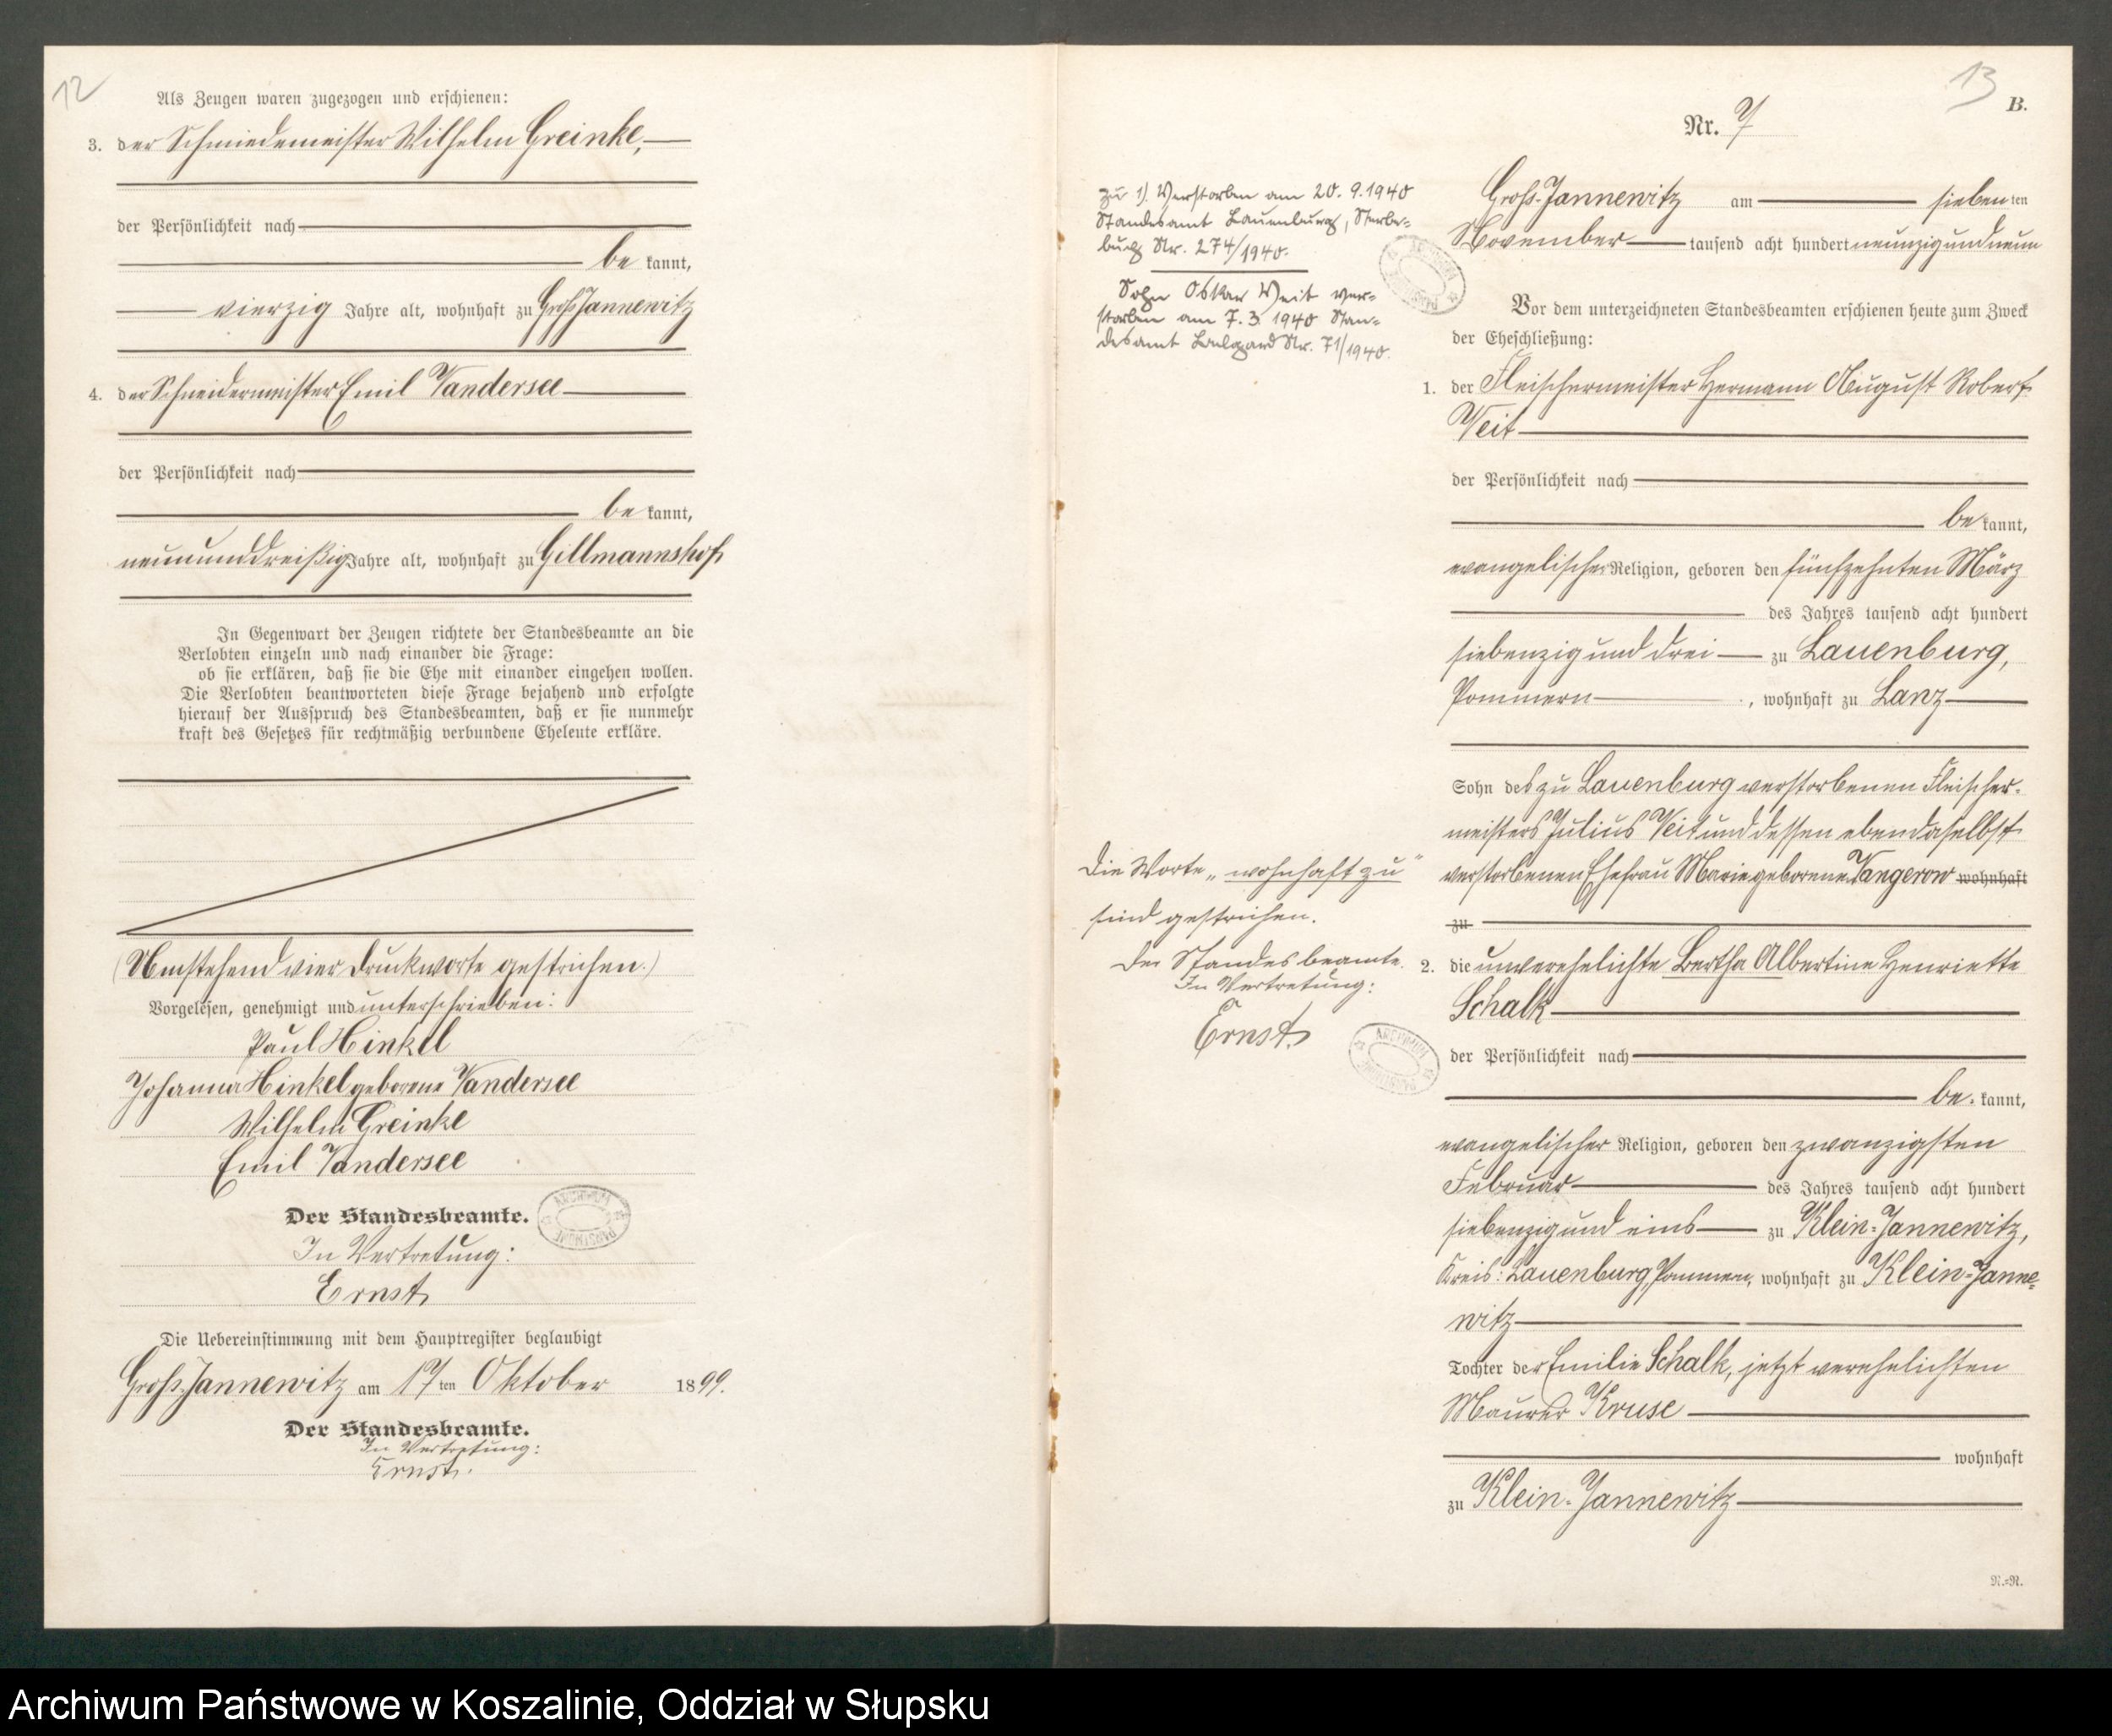 12
Als Zeugen waren zugezogen und erschienen:
3. der Schmiedemeister Wilhelm Greinke,
der Persönlichkeit nach
be kannt,
vierzig Jahre alt, wohnhaft zu Groß Jannewitz
4. der Schneidermeister Emil Vandersee
der Persönlichkeit nach
be kannt,
neununddreißig Jahre alt, wohnhaft zu Gillmannshof
In Gegenwart der Zeugen richtete der Standesbeamte an die
Verlobten einzeln und nach einander die Frage:
ob sie erklären, daß sie die Ehe mit einander eingehen wollen.
Die Verlobten beantworteten diese Frage bejahend und erfolgte
hierauf der Ausspruch des Standesbeamten, daß er sie nunmehr
kraft des Gesetzes für rechtmäßig verbundene Eheleute erkläre.
(Umstehend vier Druckworte gestrichen.)
Vorgelesen, genehmigt und unterschrieben:
Paul Hinkel
Johanna Hinkel geborene Vandersee
Wilhelm Greinke
Emil Vandersee
Der Standesbeamte.
In Vertretung:
Ernst
Die Uebereinstimmung mit dem Hauptregister beglaubigt
Groß Jannewitz am 17ten Oktober 1899.
Der Standesbeamte.
In Vertretung:
Ernst.
13
B.
Nr. 7
Groß-Jannewitz am siebenten
November tausend acht hundert neunzig und neun
Vor dem unterzeichneten Standesbeamten erschienen heute zum Zweck
der Eheschließung:
1. der Fleischermeister Hermann August Robert
Veit
der Persönlichkeit nach
be kannt,
evangelischer Religion, geboren den fünfzehnten März
des Jahres tausend acht hundert
siebenzig und drei zu Lauenburg,
Pommern, wohnhaft zu Lanz
Sohn des zu Lauenburg verstorbenen Fleischer-
meisters Julius Veit und dessen ebendaselbst
verstorbenen Ehefrau Marie geborene Vangerow wohnhaft
zu
2. die unverehelichte Bertha Albertine Henriette
Schalk
der Persönlichkeit nach
be kannt,
evangelischer Religion, geboren den zwanzigsten
Februar des Jahres tausend acht hundert
siebenzig und eins zu Klein-Jannewitz,
Kreis: Lauenburg, Pommern, wohnhaft zu Klein-Janne-
witz
Tochter der Emilie Schalk, jetzt verehelichten
Maurer Kruse
wohnhaft
zu Klein-Jannewitz
N.-N.
zu 1). Verstorben am 20.9.1940
Standesamt Lauenburg, Sterbe-
buch Nr. 274/1940.
Sohn Oskar Veit ver-
storben am 7.3.1940 Stan-
desamt Belgard Nr. 71/1940.
Die Worte „wohnhaft zu"
sind gestrichen.
Der Standesbeamte.
In Vertretung:
Ernst.
ARCHIWUM PAŃSTWOWE
ARCHIWUM PAŃSTWOWE
ARCHIWUM PAŃSTWOWE
Archiwum Państwowe w Koszalinie, Oddział w Słupsku